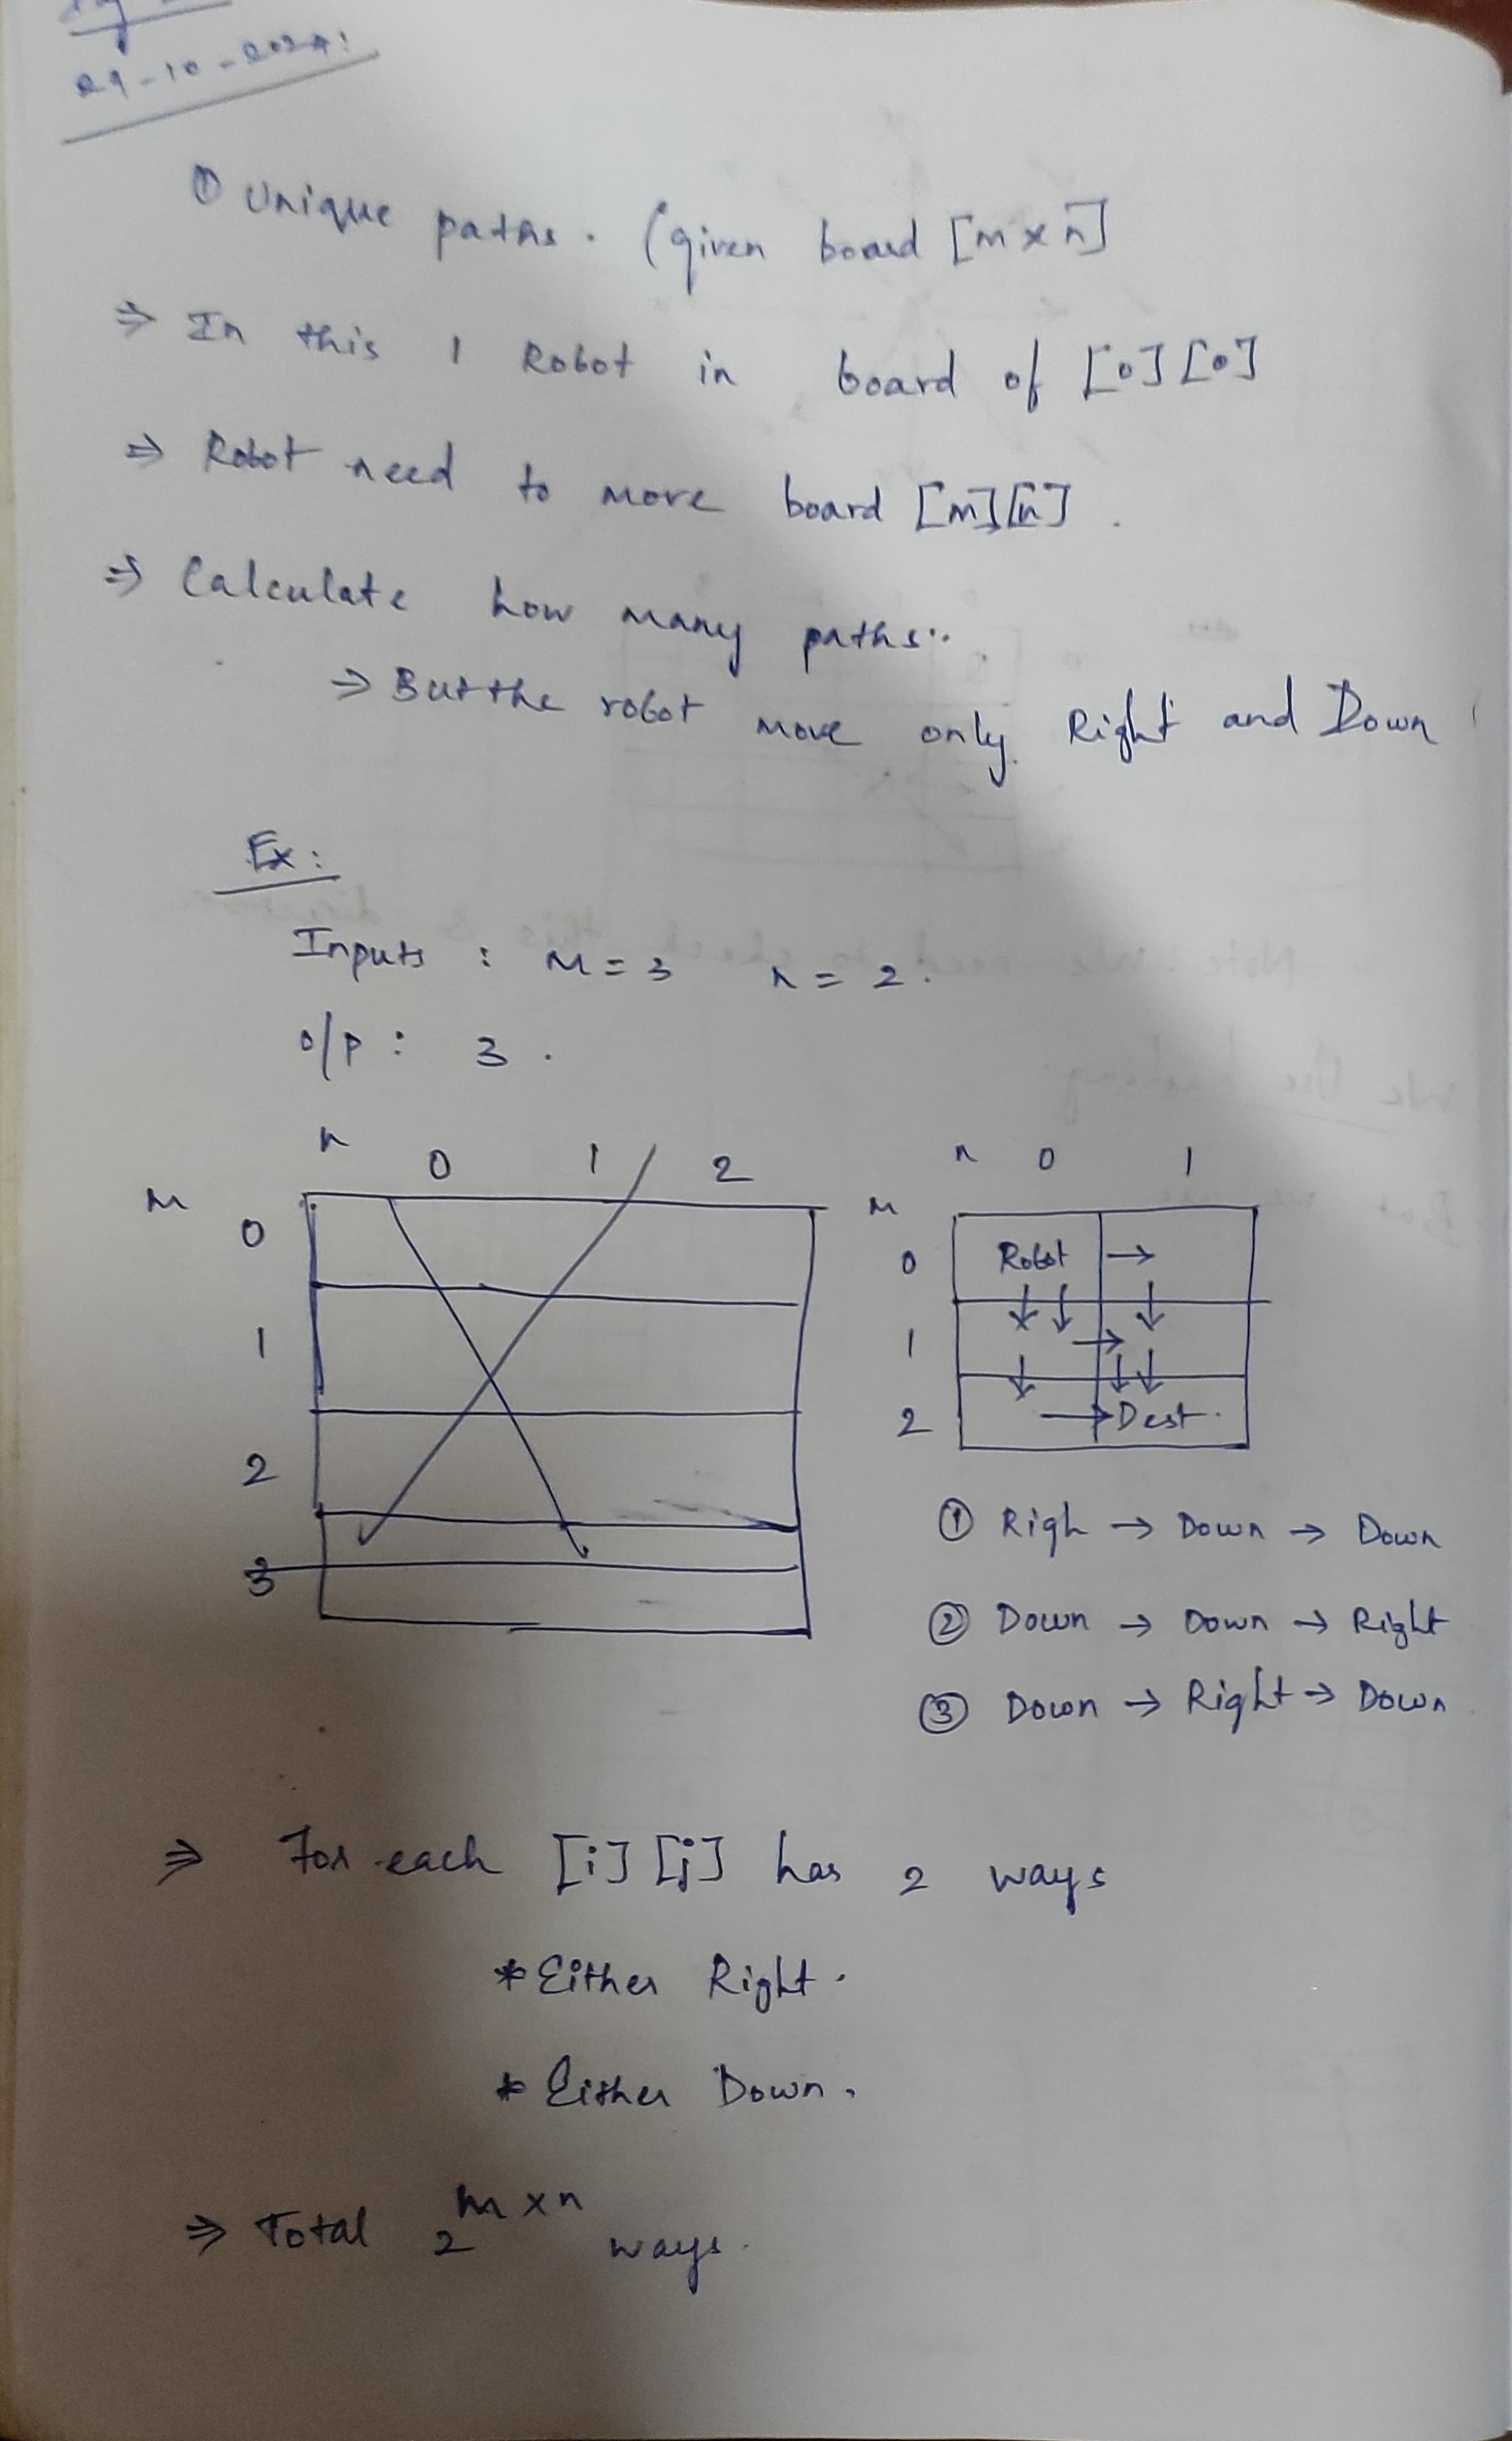 29-10-2024:
① Unique paths. (given board [m x n]
⇒ In this 1 Robot in board of [0][0]
⇒ Robot need to move board [m][n].
⇒ Calculate how many paths..
⇒ But the robot move only Right and Down
Ex:
Inputs : M = 3 n = 2.
O/P : 3.
n 0 1 2
M
0
1
2
3
n 0 1
M
0 Robot →
↓ ↓ ↓
1 →
↓ ↓ ↓
2 → Dest.
① Righ → Down → Down
② Down → Down → Right
③ Down → Right → Down
⇒ For each [i][j] has 2 ways
* Either Right.
* Either Down.
⇒ Total 2^(m x n) ways.